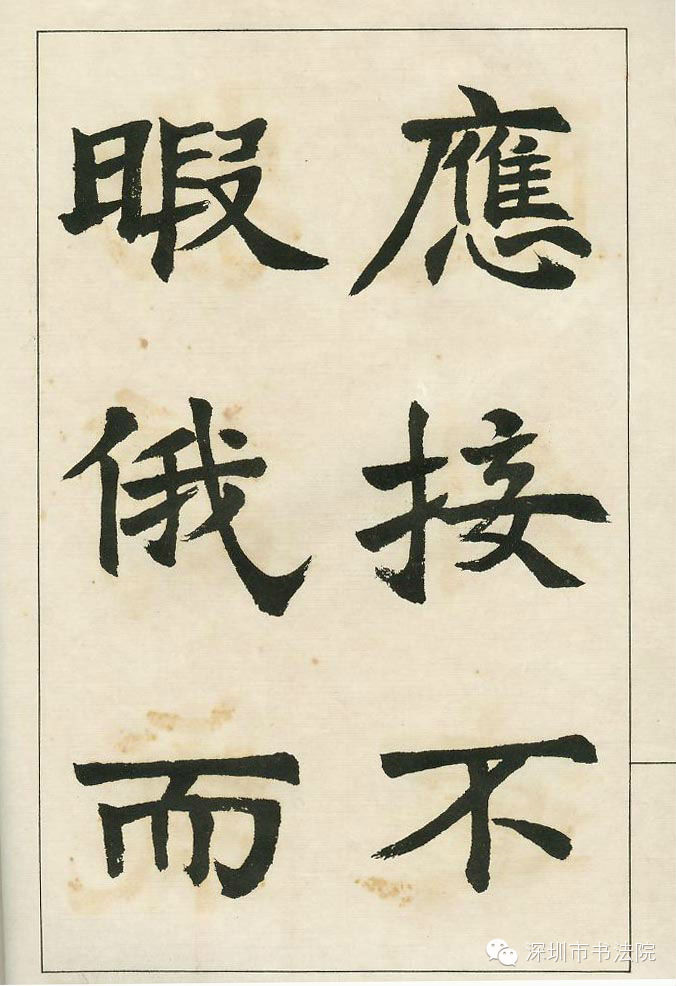 應接不
暇俄而
深圳市书法院